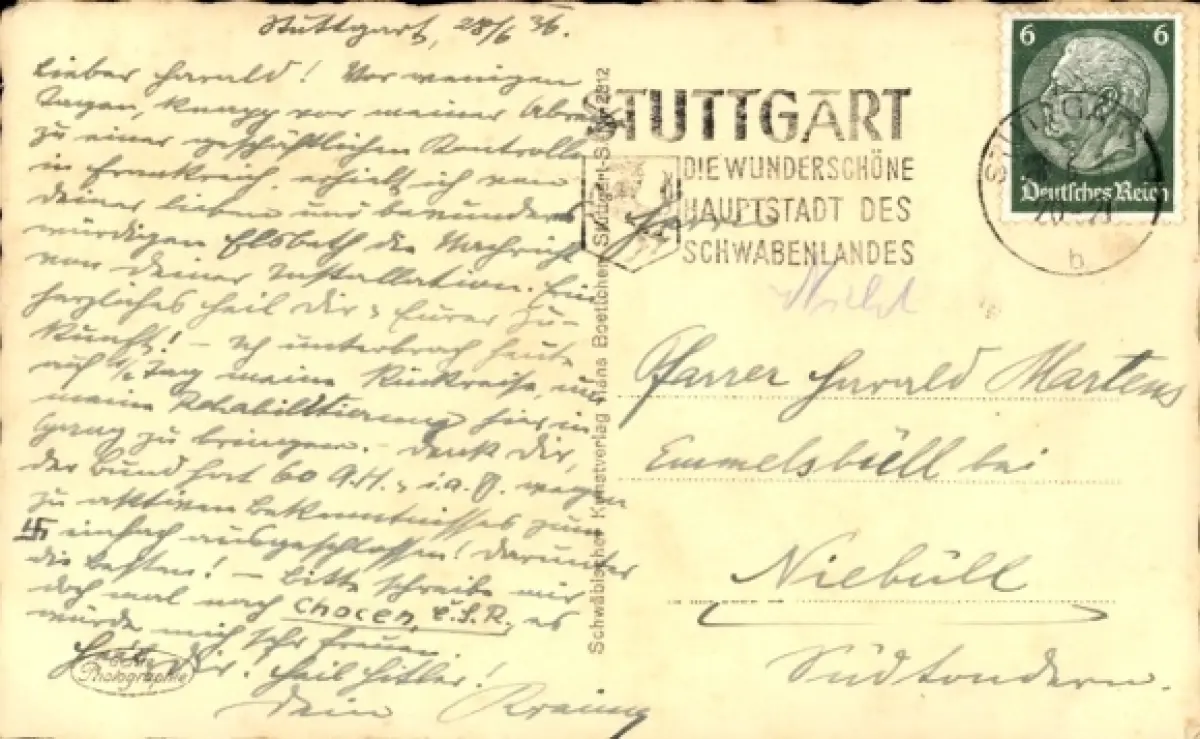 Stuttgart, 28/6 36.
Lieber Harald! Vor wenigen
Tagen, knapp vor meiner Abreise
zu einer geschäftlichen Kontrolle
in Frankreich, erhielt ich von
deiner lieben und bewunderns
würdigen Elsbeth die Nachricht
von deiner Installation. Ein
herzliches Heil dir & Eurer Zu-
kunft! - Ich unterbrach heute
auf ½ Tag meine Rückreise, um
meine Rehabilitierung hier in
Gang zu bringen. - Denk dir,
der Bund hat 60 A.H. & i.a.B. wegen
zu aktiven Bekenntnisses zum
卐 einfach ausgeschlossen! Darunter
die Besten! - Bitte schreibe mir
doch mal nach Chocen, Č.S.R., es
würde mich sehr freuen.
Heil Dir! Heil Hitler!
Dein
Photographie
Schwäbischer Kunstverlag Hans Boettcher, Stuttgart-S. 2812
STUTTGART
DIE WUNDERSCHÖNE
HAUPTSTADT DES
SCHWABENLANDES
6 6
Deutsches Reich
b
Herrn
Pfarrer Harald Martens
Emmelsbüll bei
Niebüll
Südtondern.